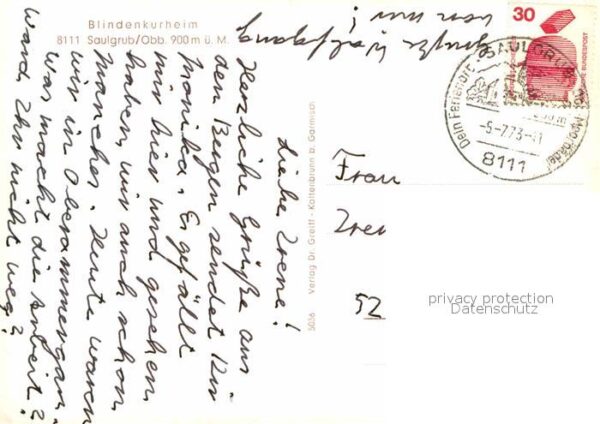 Blindenkurheim
8111 Saulgrub/Obb. 900 m ü. M.
Liebe Irene!
Herzliche Grüße aus
den Bergen sendet Dir
Monika. Es gefällt
mir hier und gesehen
haben wir auch schon
manches. Heute waren
wir in Oberammergau.
Was macht die Arbeit?
Ward Ihr nicht weg?
Grüße Wolfgang
von mir!
5036 Verlag Dr. Greiff - Kaltenbrunn b. Garmisch
30
DEUTSCHE BUNDESPOST
Dein Ferienort SAULGRUB
-5-7.73-11
8111
Frau
Irene
52
privacy protection
Datenschutz